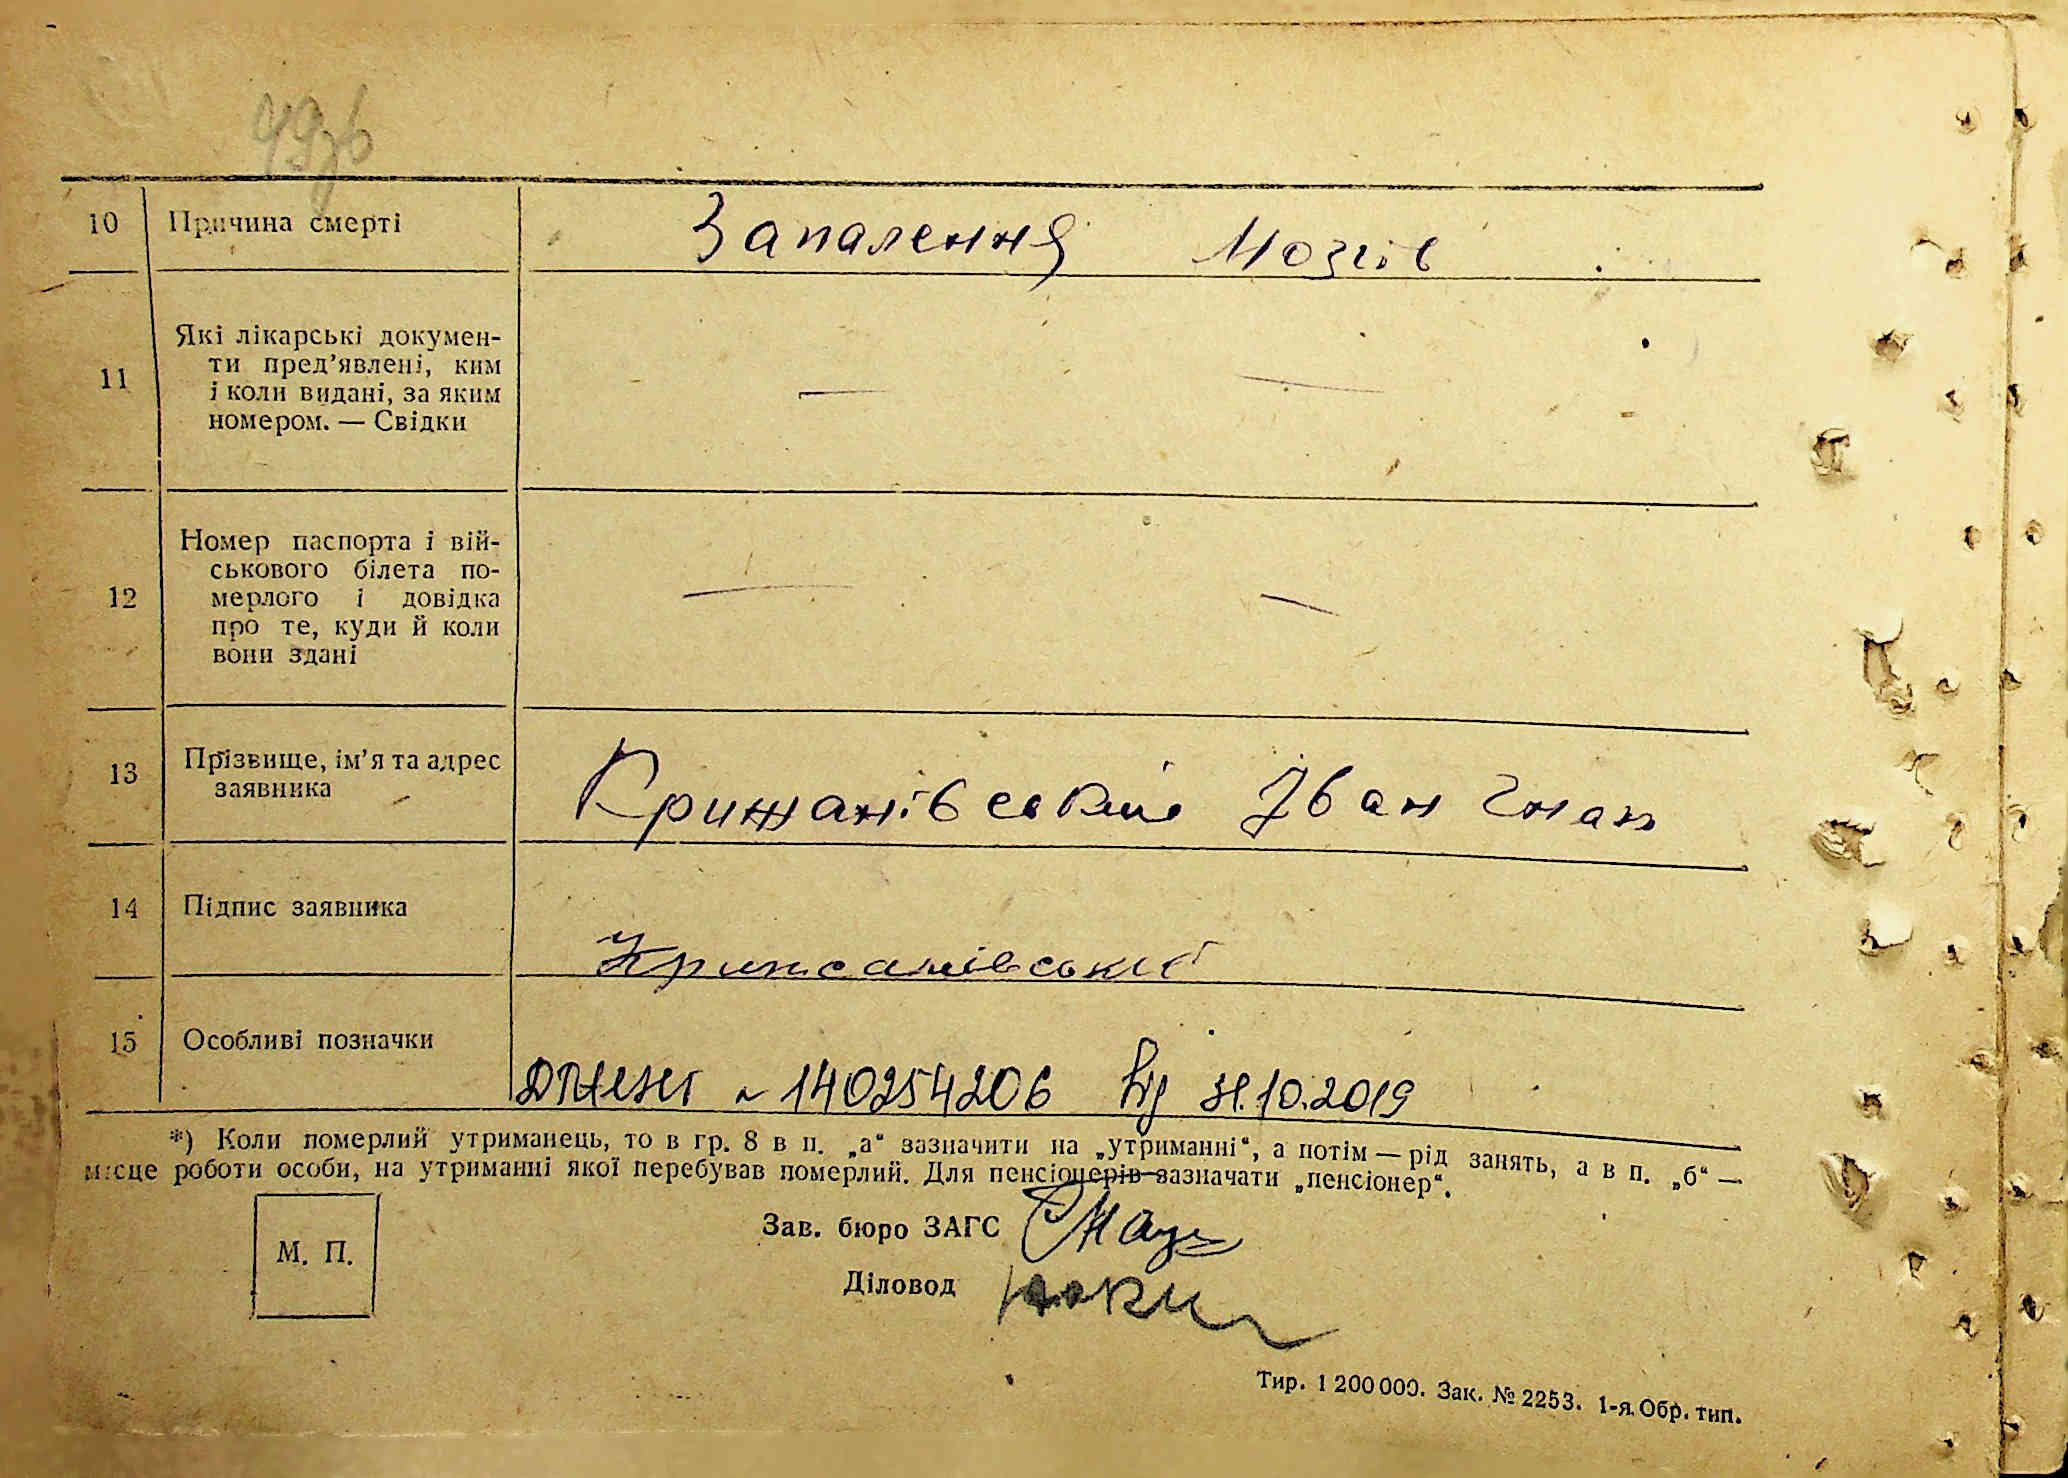 10 Причина смерті Запалення мозків
11 Які лікарські докумен-
ти пред’явлені, ким
і коли видані, за яким
номером. — Свідки — —
12 Номер паспорта і вій-
ськового білета по-
мерлого і довідка
про те, куди й коли
вони здані — —
13 Прізвище, ім’я та адрес
заявника Крижанівський Іван Гнат
14 Підпис заявника Крижанівський
15 Особливі позначки
140254206 від 31.10.2019
*) Коли померлий утриманець, то в гр. 8 в п. „а“ зазначити на „утриманні“, а потім — рід занять, а в п. „б“ —
місце роботи особи, на утриманні якої перебував померлий. Для пенсіонерів зазначати „пенсіонер“.
Зав. бюро ЗАГС
М. П.
Діловод
Тир. 1 200 000. Зак. № 2253. 1-я Обр. тип.